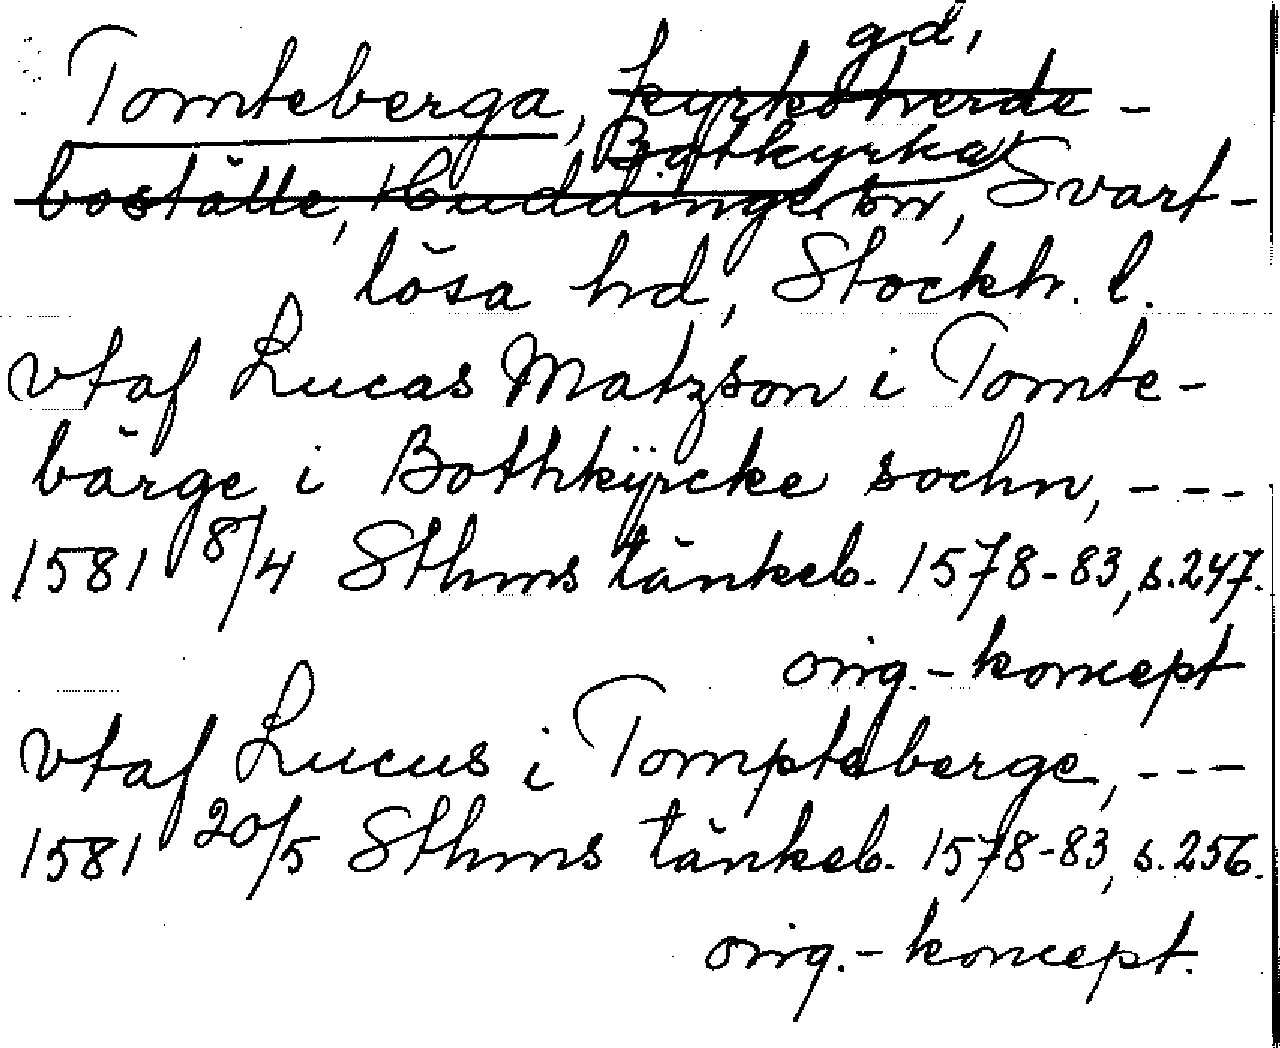 gd,
Tomteberga, kyrkoherde-
Botkyrka
boställe, Huddinge sn, Svart-
lösa hd, Stockh. l.
vtaf Lucas Matzson i Tomte-
bärge i Bothkÿrcke sochn, ---
1581 8/4 Sthms tänkeb. 1578-83, s.247.
orig.-koncept
vtaf Lucus i Tompteberge, ---
1581 20/5 Sthms tänkeb. 1578-83, s.256.
orig.-koncept.